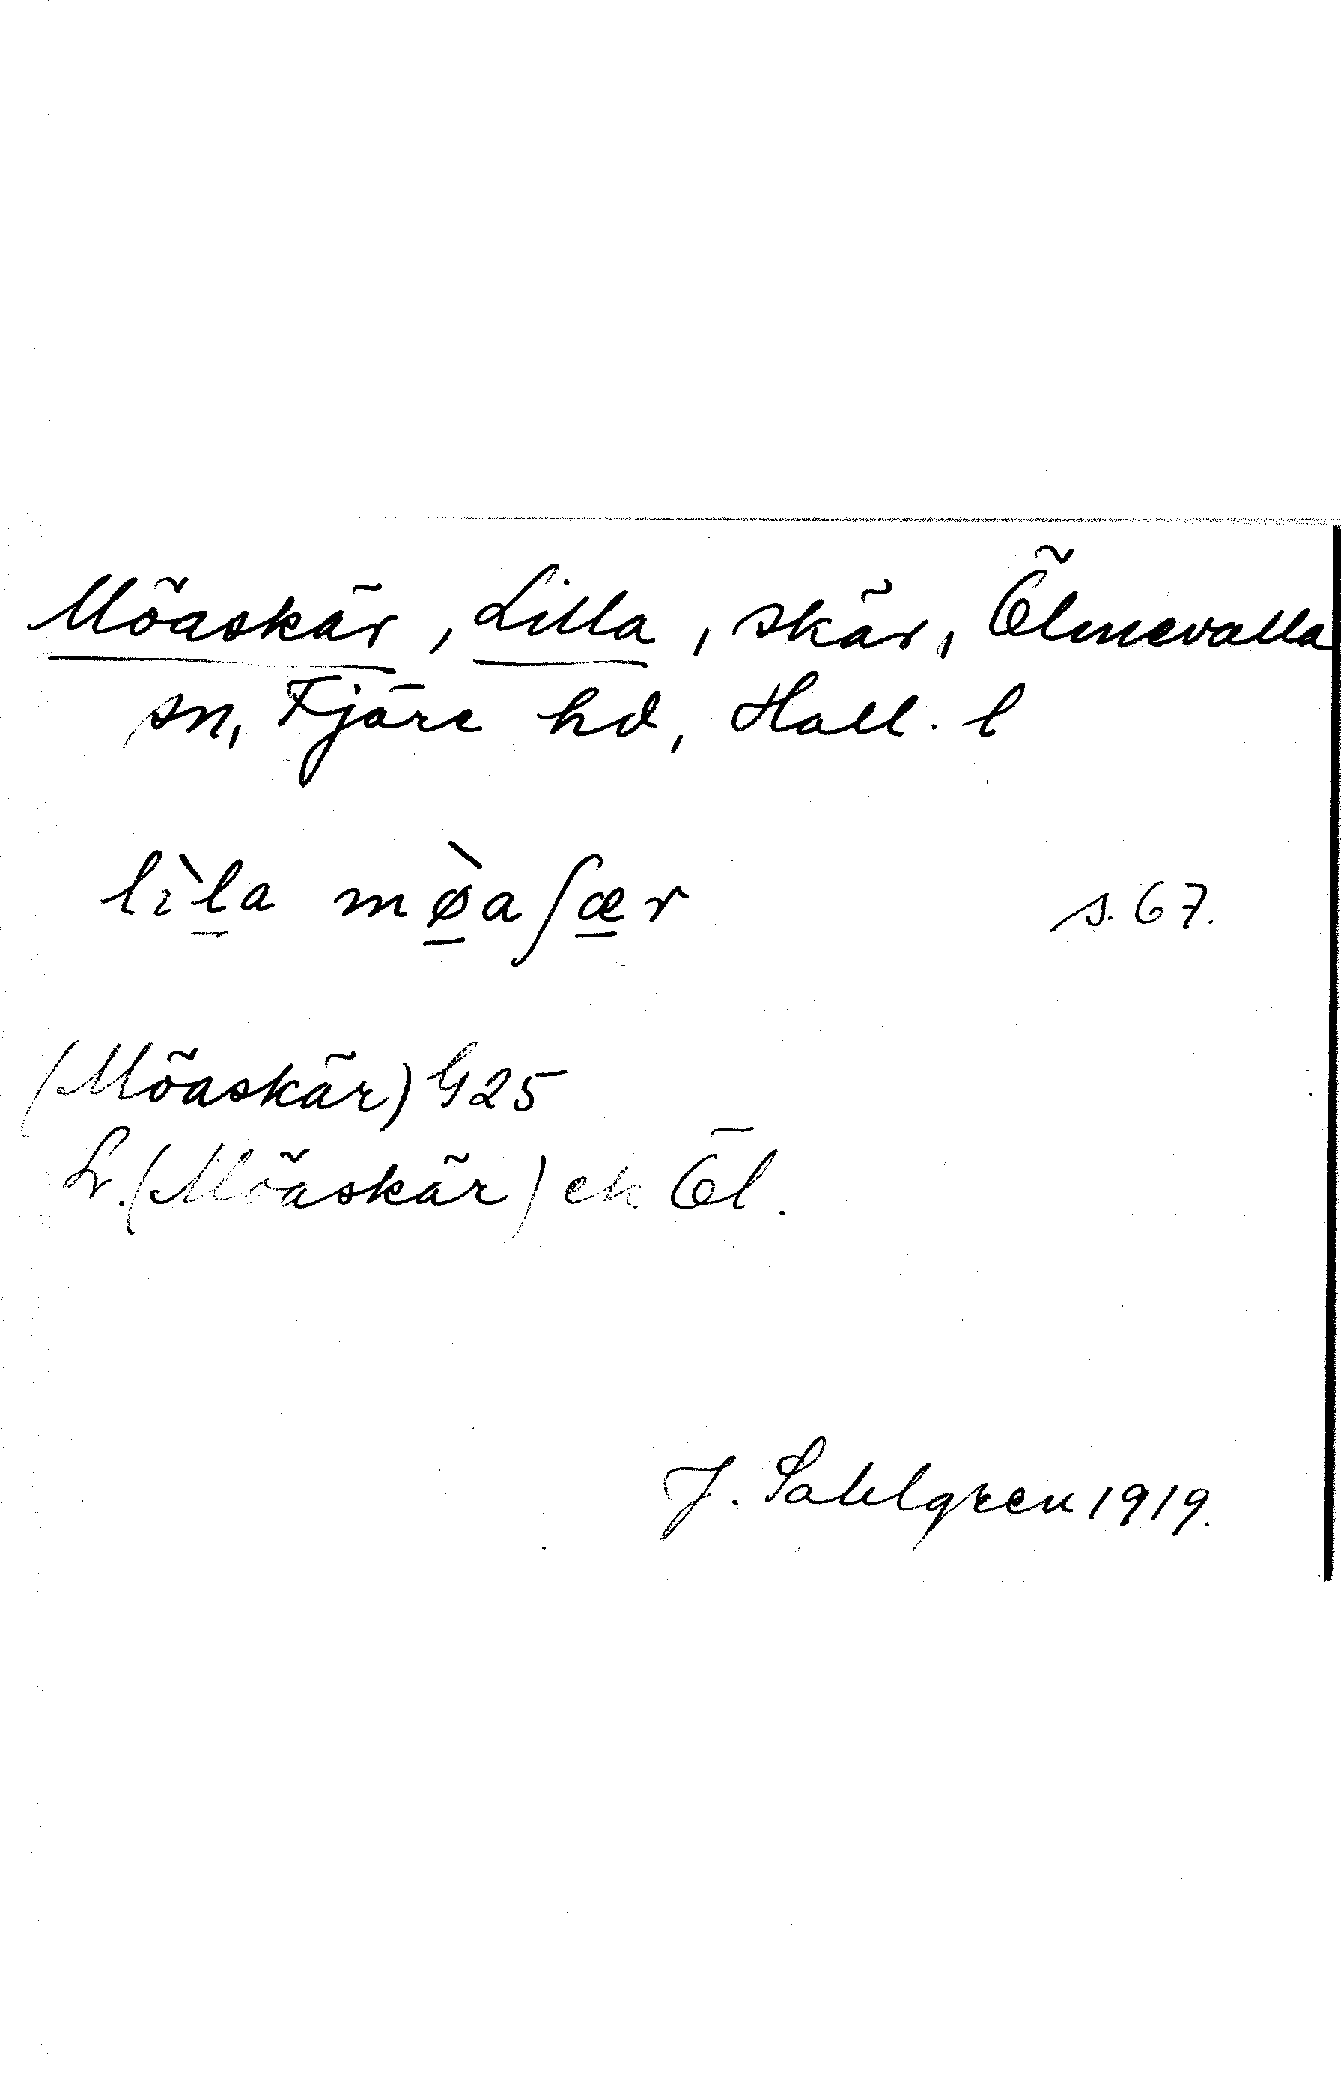 Möaskär, Lilla, skär, Ölmevalla
sn, Fjäre hd, Hall. l
lìla mø̀aʃær s. 67.
(Möaskär) G25
L. (Möaskär) ek. Öl.
J. Sahlgren 1919.